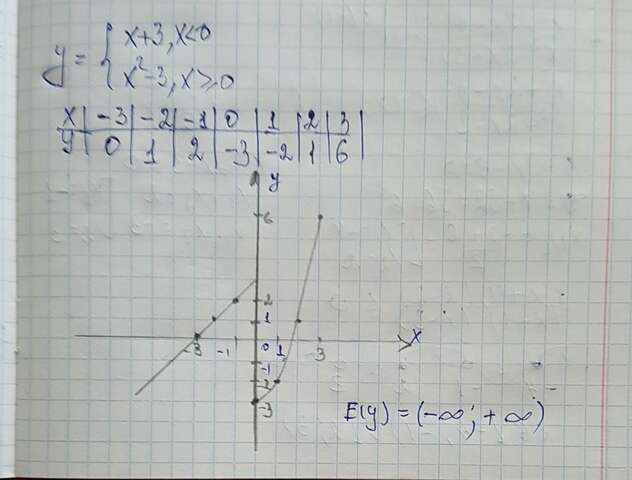 y = { x+3, x<0
x²-3, x≥0
x | -3 | -2 | -1 | 0 | 1 | 2 | 3 |
y | 0 | 1 | 2 | -3 | -2 | 1 | 6 |
y
6
2
1
-3 -1 0 1 -3 x
-1
-2
-3
E(y) = (-∞; +∞)